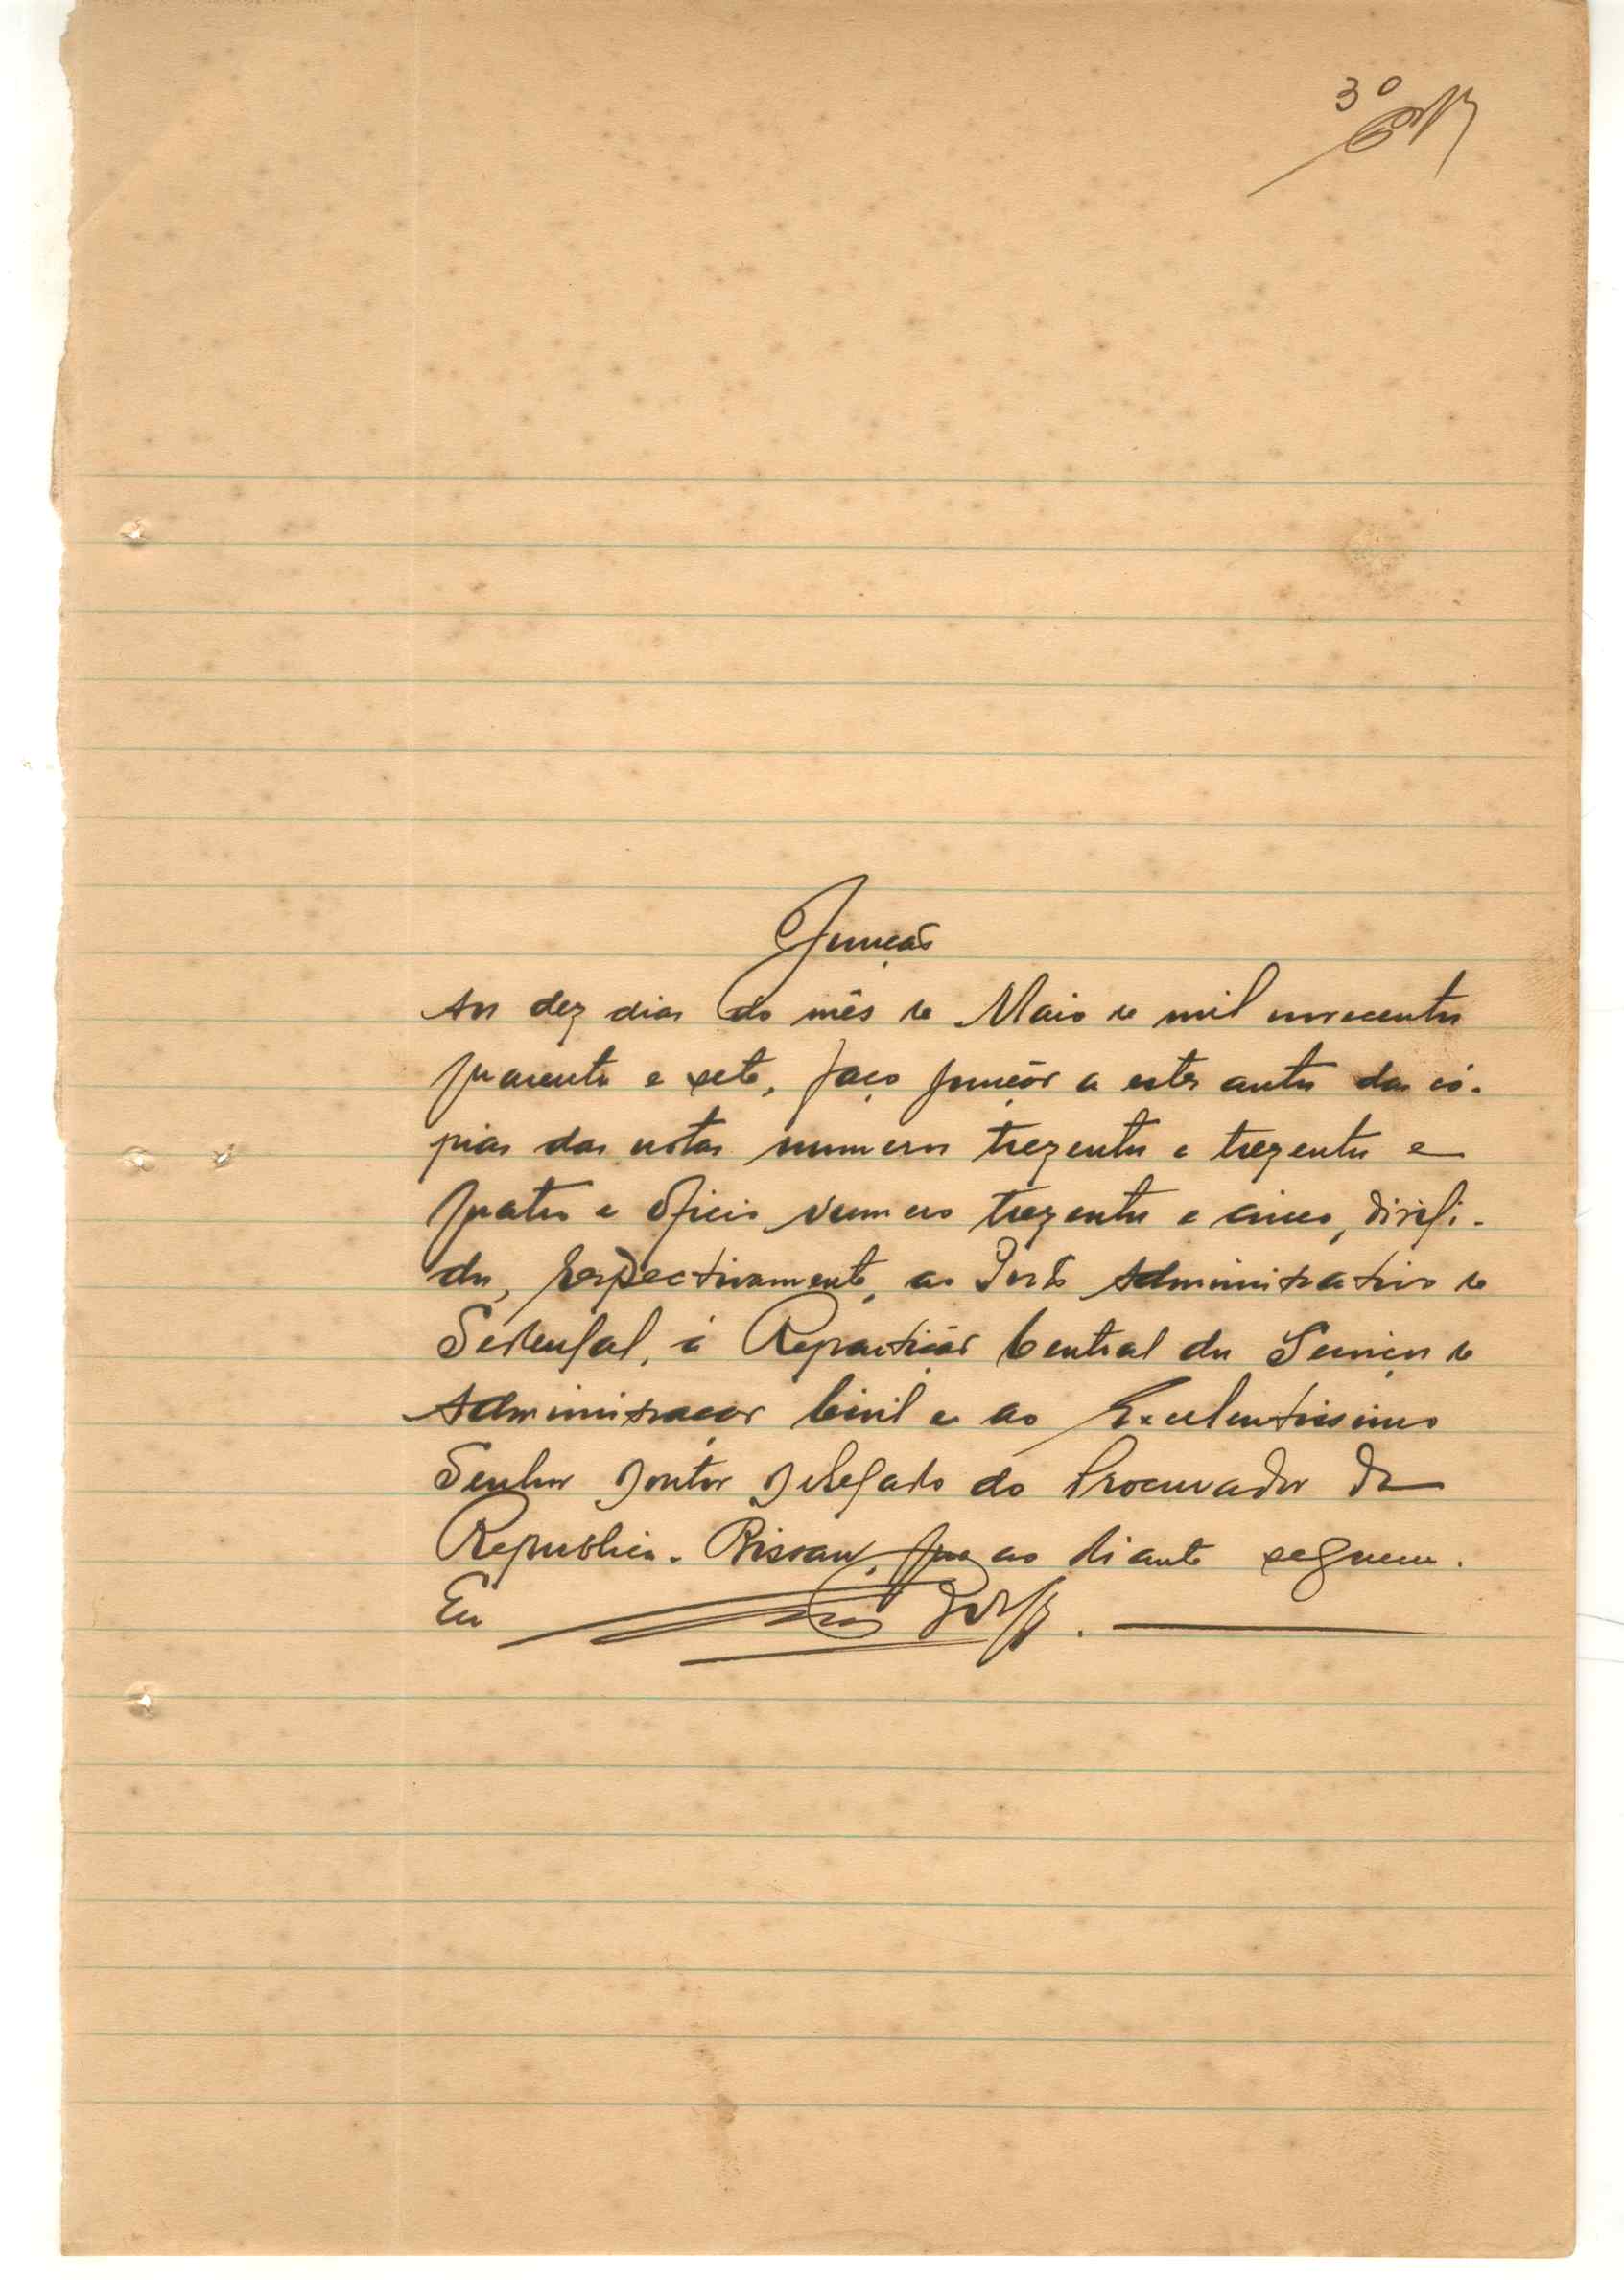 3º
Junção
Aos dez dias do mês de Maio de mil novecentos
quarenta e sete, faço junção a estes autos das có-
pias das notas numeros trezentos e trezentos e
quatro e oficio numero trezentos e cinco, dirigi-
dos, respectivamente, ao Posto Administrativo de
à Repartição Central dos Serviços de
Administração Civil e ao Excelentissimo
Senhor Doutor Delegado do Procurador da
Republica. Bissau, que ao diante seguem.
Eu